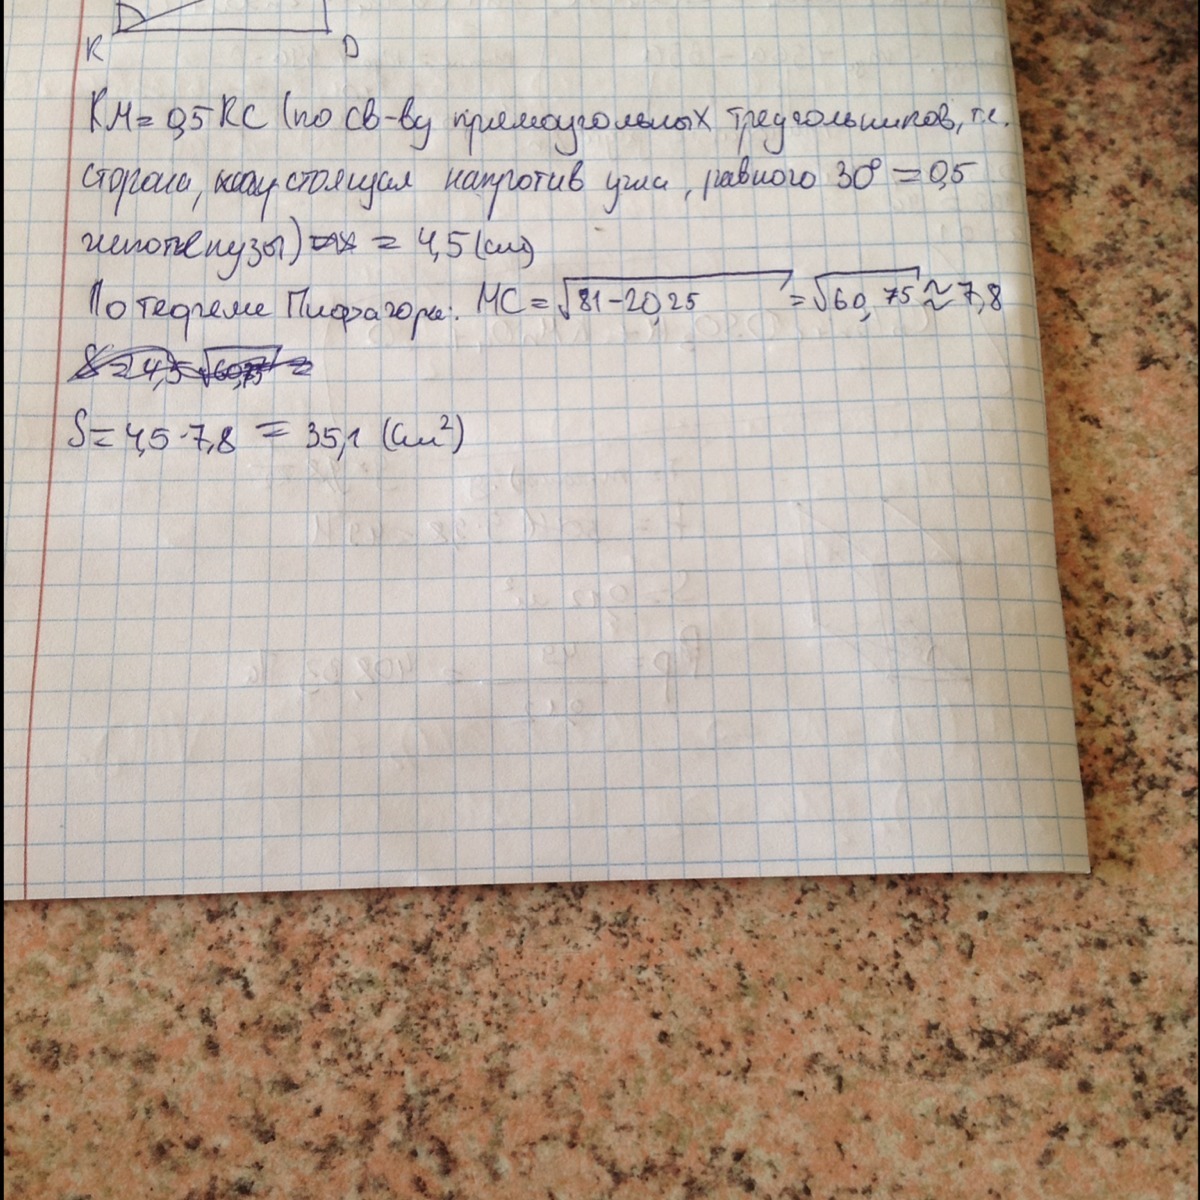 K D
KM = 0,5 KC (по св-ву прямоугольных треугольников, т.к.
сторона, стоящая напротив угла, равного 30° = 0,5
гипотенузы) = 4,5 (см)
По теореме Пифагора: MC = √81-20,25 = √60,75 ≈ 7,8
S = 4,5 √60,75 =
S = 4,5 · 7,8 = 35,1 (см²)